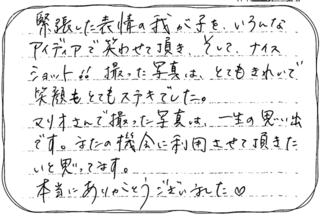 緊張した表情の我が子を、いろんな
アイディアで笑わせて頂き、そして、ナイス
ショット!! 撮った写真は、とてもきれいで
笑顔もとてもステキでした。
マリオさんで撮った写真は、一生の思い出
です。またの機会に利用させて頂きた
いと思ってます。
本当にありがとうございました♡